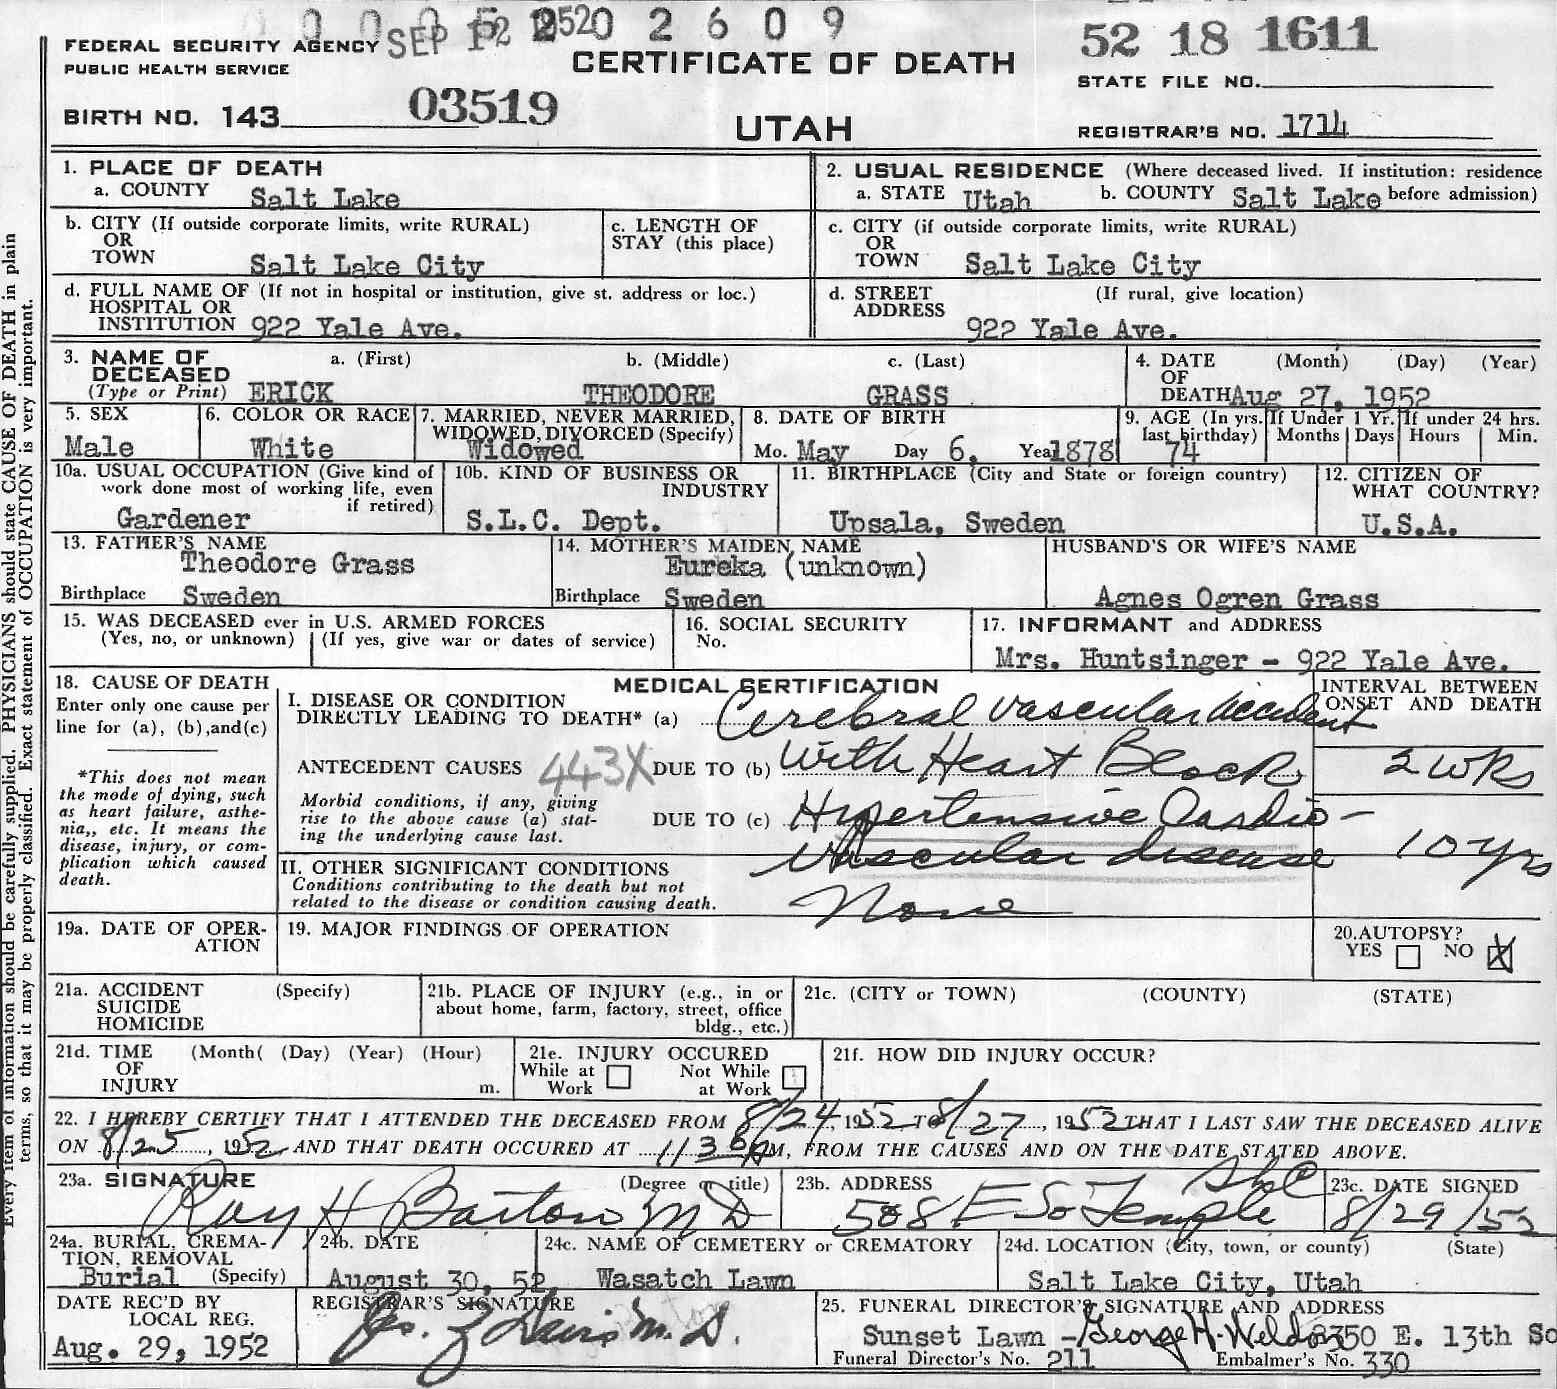 SEP 12 1952 0 2 6 0 9
FEDERAL SECURITY AGENCY
PUBLIC HEALTH SERVICE
CERTIFICATE OF DEATH
52 18 1611
STATE FILE NO.
BIRTH NO. 143 03519
UTAH
REGISTRAR'S NO. 1714
1. PLACE OF DEATH
a. COUNTY Salt Lake
2. USUAL RESIDENCE (Where deceased lived. If institution: residence before admission)
a. STATE Utah b. COUNTY Salt Lake
b. CITY (If outside corporate limits, write RURAL)
OR
TOWN Salt Lake City
c. LENGTH OF
STAY (this place)
c. CITY (if outside corporate limits, write RURAL)
OR
TOWN Salt Lake City
d. FULL NAME OF (If not in hospital or institution, give st. address or loc.)
HOSPITAL OR
INSTITUTION 922 Yale Ave.
d. STREET (If rural, give location)
ADDRESS
922 Yale Ave.
3. NAME OF DECEASED a. (First) b. (Middle) c. (Last)
(Type or Print) ERICK THEODORE GRASS
4. DATE (Month) (Day) (Year)
OF
DEATH Aug 27, 1952
5. SEX
Male
6. COLOR OR RACE
White
7. MARRIED, NEVER MARRIED,
WIDOWED, DIVORCED (Specify)
Widowed
8. DATE OF BIRTH
Mo. May Day 6, Year 1878
9. AGE (In yrs. last birthday) 74
If Under 1 Yr. Months Days
If under 24 hrs. Hours Min.
10a. USUAL OCCUPATION (Give kind of
work done most of working life, even
if retired)
Gardener
10b. KIND OF BUSINESS OR
INDUSTRY
S.L.C. Dept.
11. BIRTHPLACE (City and State or foreign country)
Upsala, Sweden
12. CITIZEN OF
WHAT COUNTRY?
U.S.A.
13. FATHER'S NAME
Theodore Grass
Birthplace Sweden
14. MOTHER'S MAIDEN NAME
Eureka (unknown)
Birthplace Sweden
HUSBAND'S OR WIFE'S NAME
Agnes Ogren Grass
15. WAS DECEASED ever in U.S. ARMED FORCES
(Yes, no, or unknown) (If yes, give war or dates of service)
16. SOCIAL SECURITY
No.
17. INFORMANT and ADDRESS
Mrs. Huntsinger - 922 Yale Ave.
18. CAUSE OF DEATH
Enter only one cause per
line for (a), (b),and(c)
*This does not mean
the mode of dying, such
as heart failure, asthe-
nia,, etc. It means the
disease, injury, or com-
plication which caused
death.
MEDICAL CERTIFICATION
I. DISEASE OR CONDITION
DIRECTLY LEADING TO DEATH* (a) Cerebral vascular accident
ANTECEDENT CAUSES 443X DUE TO (b) with Heart Block
Morbid conditions, if any, giving
rise to the above cause (a) stat-
ing the underlying cause last.
DUE TO (c) Hypertensive Cardio-
vascular disease
II. OTHER SIGNIFICANT CONDITIONS
Conditions contributing to the death but not
related to the disease or condition causing death.
None
INTERVAL BETWEEN
ONSET AND DEATH
2 wks
10 yrs
19a. DATE OF OPER-
ATION
19. MAJOR FINDINGS OF OPERATION
20. AUTOPSY?
YES NO X
21a. ACCIDENT (Specify)
SUICIDE
HOMICIDE
21b. PLACE OF INJURY (e.g., in or
about home, farm, factory, street, office
bldg., etc.)
21c. (CITY or TOWN) (COUNTY) (STATE)
21d. TIME (Month( (Day) (Year) (Hour)
OF
INJURY m.
21e. INJURY OCCURED
While at Work Not While at Work
21f. HOW DID INJURY OCCUR?
22. I HEREBY CERTIFY THAT I ATTENDED THE DECEASED FROM 8/24, 1952 TO 8/27, 1952 THAT I LAST SAW THE DECEASED ALIVE
ON 8/25, 1952 AND THAT DEATH OCCURED AT 11:30 M, FROM THE CAUSES AND ON THE DATE STATED ABOVE.
23a. SIGNATURE (Degree or title)
Ray H Barton M D
23b. ADDRESS
508 E So Temple SLC
23c. DATE SIGNED
8/29/52
24a. BURIAL, CREMA-
TION, REMOVAL
Burial (Specify)
24b. DATE
August 30, 52
24c. NAME OF CEMETERY or CREMATORY
Wasatch Lawn
24d. LOCATION (City, town, or county) (State)
Salt Lake City, Utah
DATE REC'D BY
LOCAL REG.
Aug. 29, 1952
REGISTRAR'S SIGNATURE
25. FUNERAL DIRECTOR'S SIGNATURE AND ADDRESS
Sunset Lawn - George H. Weldon 2350 E. 13th So
Funeral Director's No. 211 Embalmer's No. 330
Every item of information should be carefully supplied. PHYSICIANS should state CAUSE OF DEATH in plain
terms, so that it may be properly classified. Exact statement of OCCUPATION is very important.